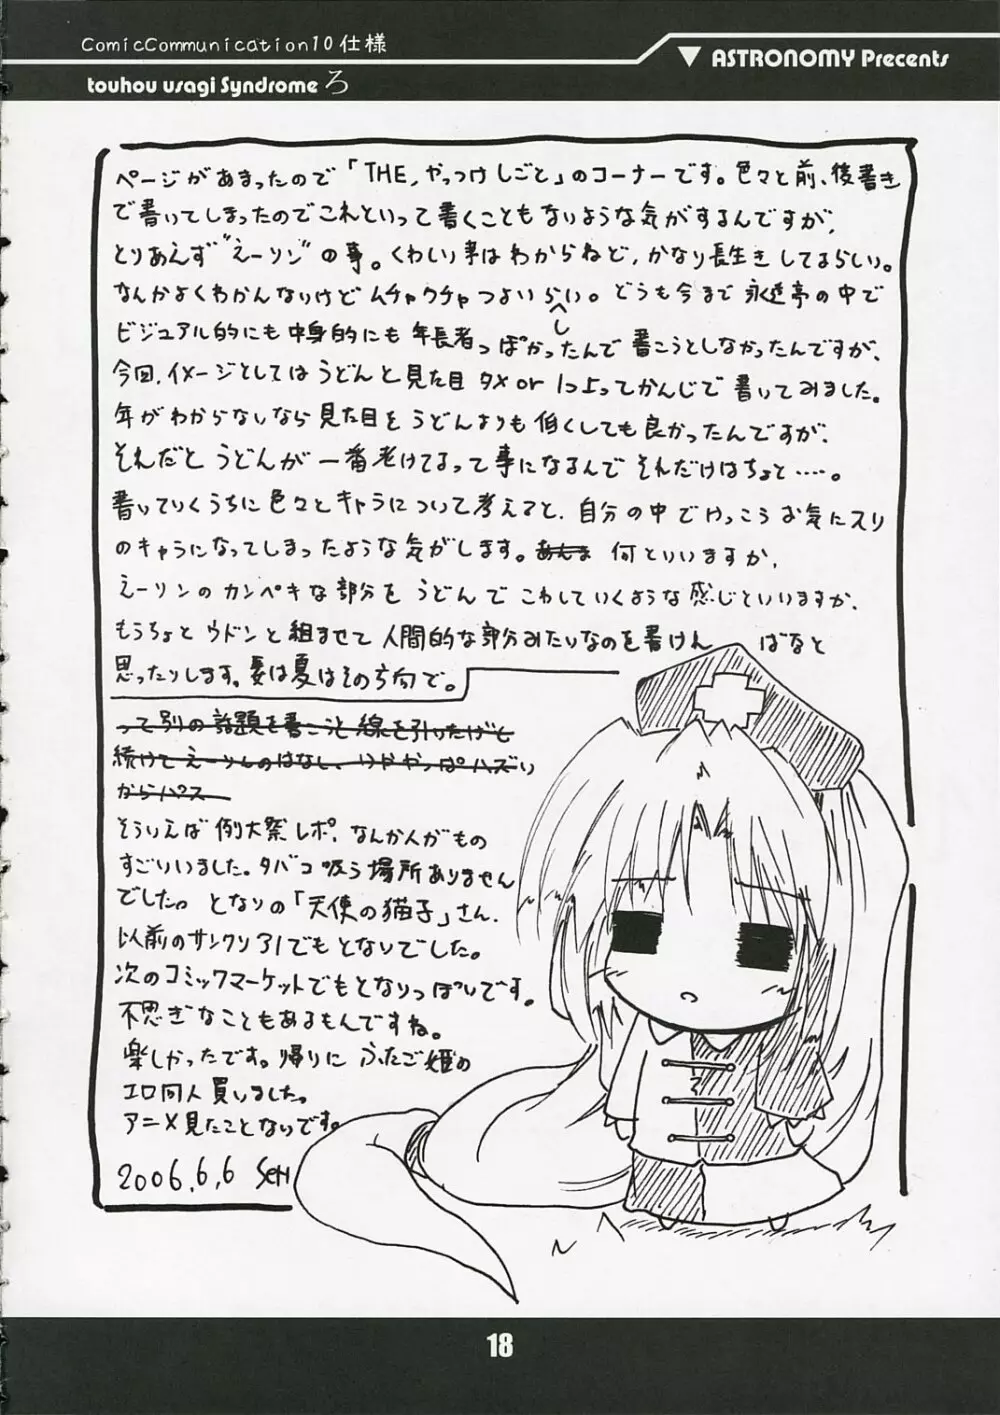 ComicCommunication10仕様
touhou usagi Syndromeろ
▼ ASTRONOMY Precents
ページがあまったので「THE,やっつけしごと」のコーナーです。色々と前、後書き
で書いてしまったのでこれといって書くこともないような気がするんですが、
とりあえず“えーリン”の事。くわしい事はわからねど、かなり長生きしてるらしい。
なんかよくわかんないけどムチャクチャつよいらしい。どうも今まで永遠亭の中で
ビジュアル的にも中身的にも年長者っぽかったんで書こうとしなかったんですが、
今回、イメージとしてはうどんと見た目タメor1つ上ってかんじで書いてみました。
年がわからないなら見た目をうどんよりも低くしても良かったんですが、
それだとうどんが一番老けてるって事になるんでそれだけはちょと……。
書いていくうちに色々とキャラについて考えてると、自分の中でけっこうお気にスリ
のキャラになってしまったような気がします。あんま 何といいますか、
えーリンのカンペキな部分をうどんでこわしていくような感じといいますか、
もうちょとウドンと組ませて人間的な部分みたいなのを書けん ばなと
思ったりします。夏は夏はその方向で。
って別の話題を書こうと線を引いたけど
続けてえーりんのはなし、いややっぱハズい
からパス
そういえば例大祭レポ、なんか人がもの
すごいいました。タバコ吸う場所ありません
でした。となりの「天使の猫子」さん、
以前のサンクリ31でもとなりでした。
次のコミックマーケットでもとなりっぽいです。
不思ぎなこともあるもんですね。
楽しかったです。帰りにふたご姫の
エロ同人買いました。
アニメ見たことないです。
2006.6.6
18